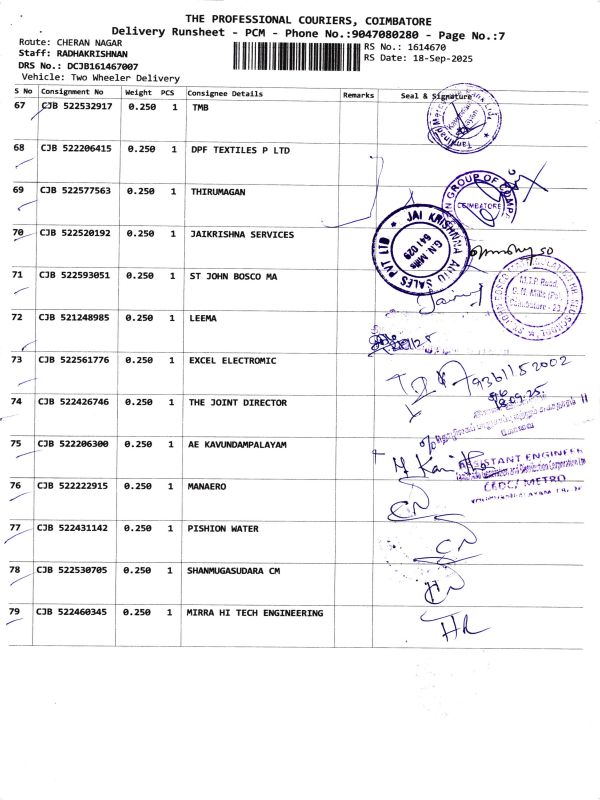 THE PROFESSIONAL COURIERS, COIMBATORE
Delivery Runsheet - PCM - Phone No.:9047080280 - Page No.:7
Route: CHERAN NAGAR
RS No.: 1614670
Staff: RADHAKRISHNAN
RS Date: 18-Sep-2025
DRS No.: DCJB161467007
Vehicle: Two Wheeler Delivery
S No Consignment No Weight PCS Consignee Details Remarks Seal & Signature
67 CJB 522532917 0.250 1 TMB
68 CJB 522206415 0.250 1 DPF TEXTILES P LTD
69 CJB 522577563 0.250 1 THIRUMAGAN
GROUP OF
COIMBATORE
70 CJB 522520192 0.250 1 JAIKRISHNA SERVICES
JAI KRISHNA AUTO SALES PVT LTD
G.N. Mills
641 029
71 CJB 522593051 0.250 1 ST JOHN BOSCO MA
M.T.P. Road,
G. N. Mills (Po)
Coimbatore - 29
72 CJB 521248985 0.250 1 LEEMA
73 CJB 522561776 0.250 1 EXCEL ELECTROMIC
9361152002
74 CJB 522426746 0.250 1 THE JOINT DIRECTOR
18.09.25
75 CJB 522206300 0.250 1 AE KAVUNDAMPALAYAM
ASSISTANT ENGINEER
METRO
76 CJB 522222915 0.250 1 MANAERO
77 CJB 522431142 0.250 1 PISHION WATER
78 CJB 522530705 0.250 1 SHANMUGASUDARA CM
79 CJB 522460345 0.250 1 MIRRA HI TECH ENGINEERING